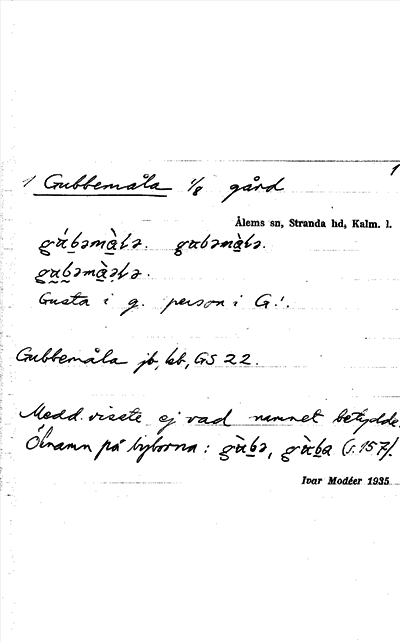 1
1 Gubbemåla 1/8 gård
Ålems sn, Stranda hd, Kalm. l.
gɑ́bəmɑ̀lə. gɑbəmɑ̀lə.
gɑbəmɑ̀ələ.
Gusta i g. person i G!.
Gubbemåla jb, kb, GS 22.
Medd. visste ej vad namnet betydde.
Öknamn på byborna: gɑ̀bə, gɑ̀ba (s. 157).
Ivar Modéer 1935